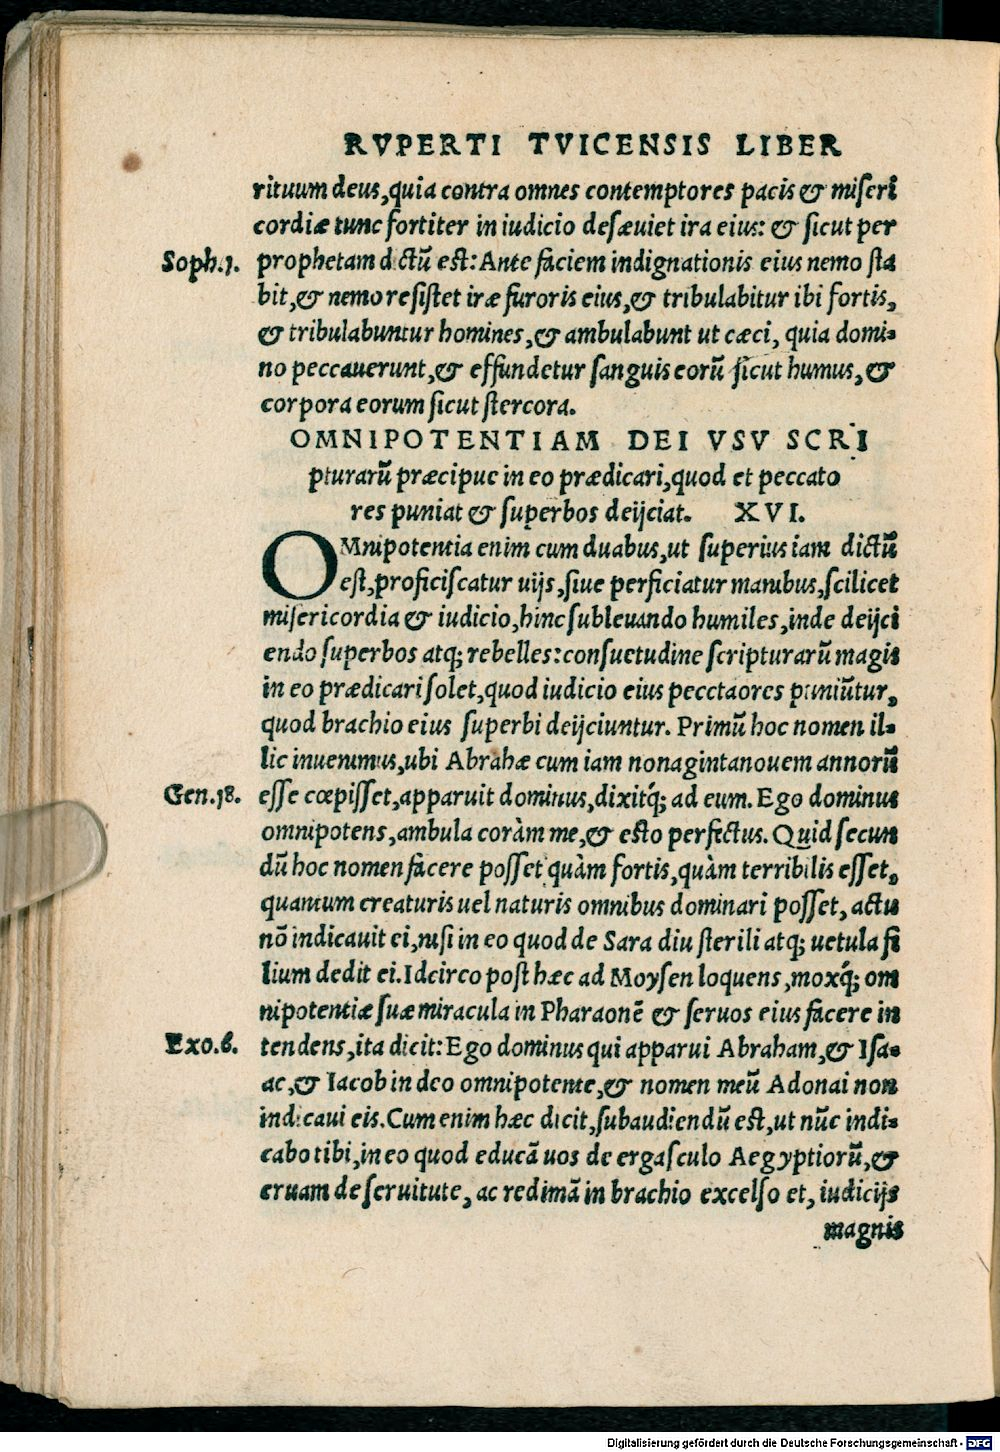 RVPERTI TVICENSIS LIBER
rituum deus,quia contra omnes contemptores pacis & miseri
cordiæ tunc fortiter in iudicio desæuiet ira eius: & sicut per
Soph.1. prophetam dictū est: Ante faciem indignationis eius nemo sta
bit,& nemo resistet iræ furoris eius,& tribulabitur ibi fortis,
& tribulabuntur homines,& ambulabunt ut cæci, quia domi-
no peccauerunt,& effundetur sanguis eorū sicut humus,&
corpora eorum sicut stercora.
OMNIPOTENTIAM DEI VSV SCRI
pturarū præcipue in eo prædicari,quod et peccato
res puniat & superbos deijciat. XVI.
OMnipotentia enim cum duabus,ut superius iam dictū
est,proficiscatur uijs,siue perficiatur manibus,scilicet
misericordia & iudicio,hinc subleuando humiles,inde deijci
endo superbos atq; rebelles:consuetudine scripturarū magis
in eo prædicari solet,quod iudicio eius pecctaores puniūtur,
quod brachio eius superbi deijciuntur. Primū hoc nomen il-
lic inuenimus,ubi Abrahæ cum iam nonagintanouem annorū
Gen.18. esse cœpisset,apparuit dominus,dixitq́; ad eum. Ego dominus
omnipotens,ambula coràm me,& esto perfectus. Quid secun
dū hoc nomen facere posset quàm fortis,quàm terribilis esset,
quantum creaturis uel naturis omnibus dominari posset, actu
nō indicauit ei,nisi in eo quod de Sara diu sterili atq; uetula fi
lium dedit ei.Idcirco post hæc ad Moysen loquens,moxq́; om
nipotentiæ suæ miracula in Pharaonē & seruos eius facere in
Exo.6. tendens,ita dicit: Ego dominus qui apparui Abraham,& Isa-
ac,& Iacob in deo omnipotente,& nomen meū Adonai non
indicaui eis.Cum enim hæc dicit,subaudiendū est,ut nūc indi-
cabo tibi,in eo quod educā uos de ergasculo Aegyptiorū,&
eruam de seruitute, ac redimā in brachio excelso et, iudicijs
magnis
Digitalisierung gefördert durch die Deutsche Forschungsgemeinschaft - DFG